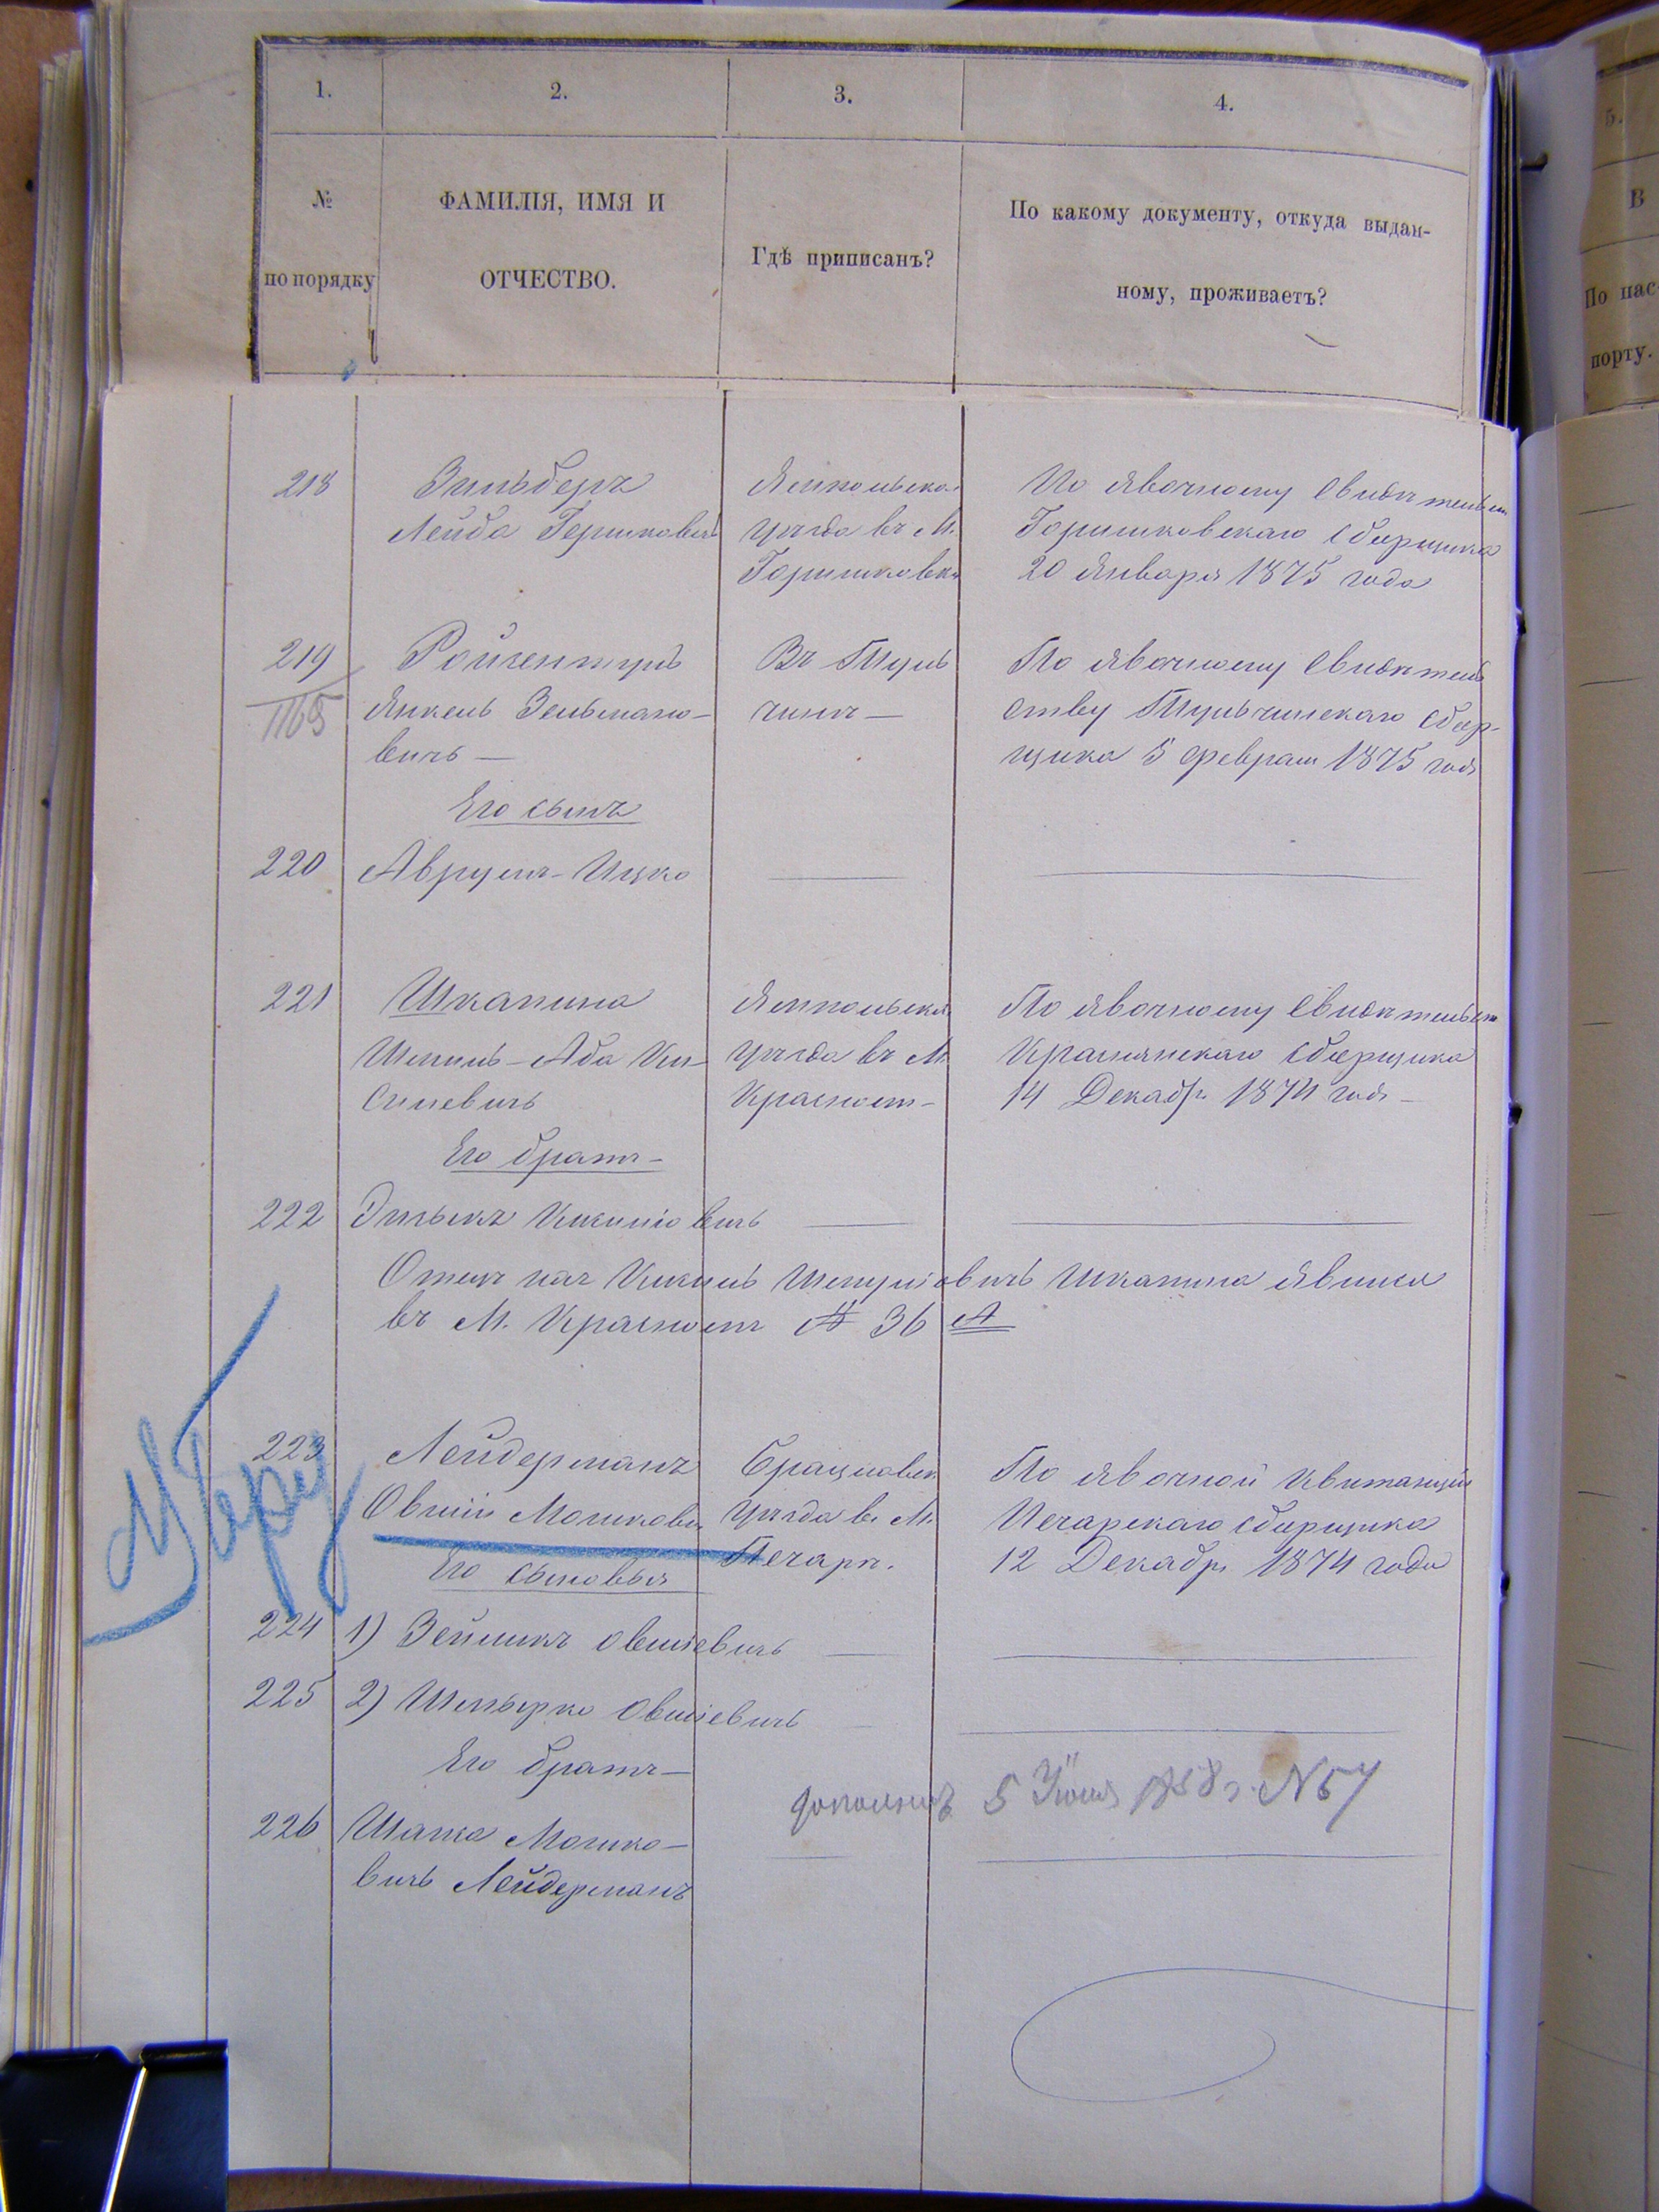 1.
2.
3.
4.
№
по порядку
ФАМИЛІЯ, ИМЯ И
ОТЧЕСТВО.
Гдѣ приписанъ?
По какому документу, откуда выдан-
ному, проживаетъ?
5.
В
По пас-
порту.
218
Зильберъ
Лейба Гершковичъ
Ямпольска.
уѣзда въ М.
Горишковкѣ
По явочному свидѣтельст
Горишковскаго сборщика
20 Января 1875 года
219
1165
Ройзентулъ
Янкель Зельмано-
вичъ —
Въ Туль
чинѣ —
По явочному свидѣтель
ству Тульчинскаго сбор-
щика 5 февраля 1875 года
Его сынъ
220
Аврумъ-Ицко
221
Шкапина
Шмиль-Аба Ки-
Ямпольска
уѣзда въ М.
Красномъ-
По явочному свидѣтельст
Краснянскаго сборщика
14 Декабря 1874 года -
Его братъ-
222
Отецъ ихъ Шкапина явился
въ М. Красномъ № 36 А
223
Лейдерманъ
Овшій Мошкович
Брацлавск
уѣзда въ М.
Печарѣ.
По явочной квитанціи
Печарскаго сборщика
12 Декабря 1874 года
Его сыновья
224
1) Зейликъ Овшіевичъ
225
2) Шмерко Овшіевичъ
Его братъ-
226
Мошко-
вичъ Лейдерманъ
5 Іюня 1858 г. N 57